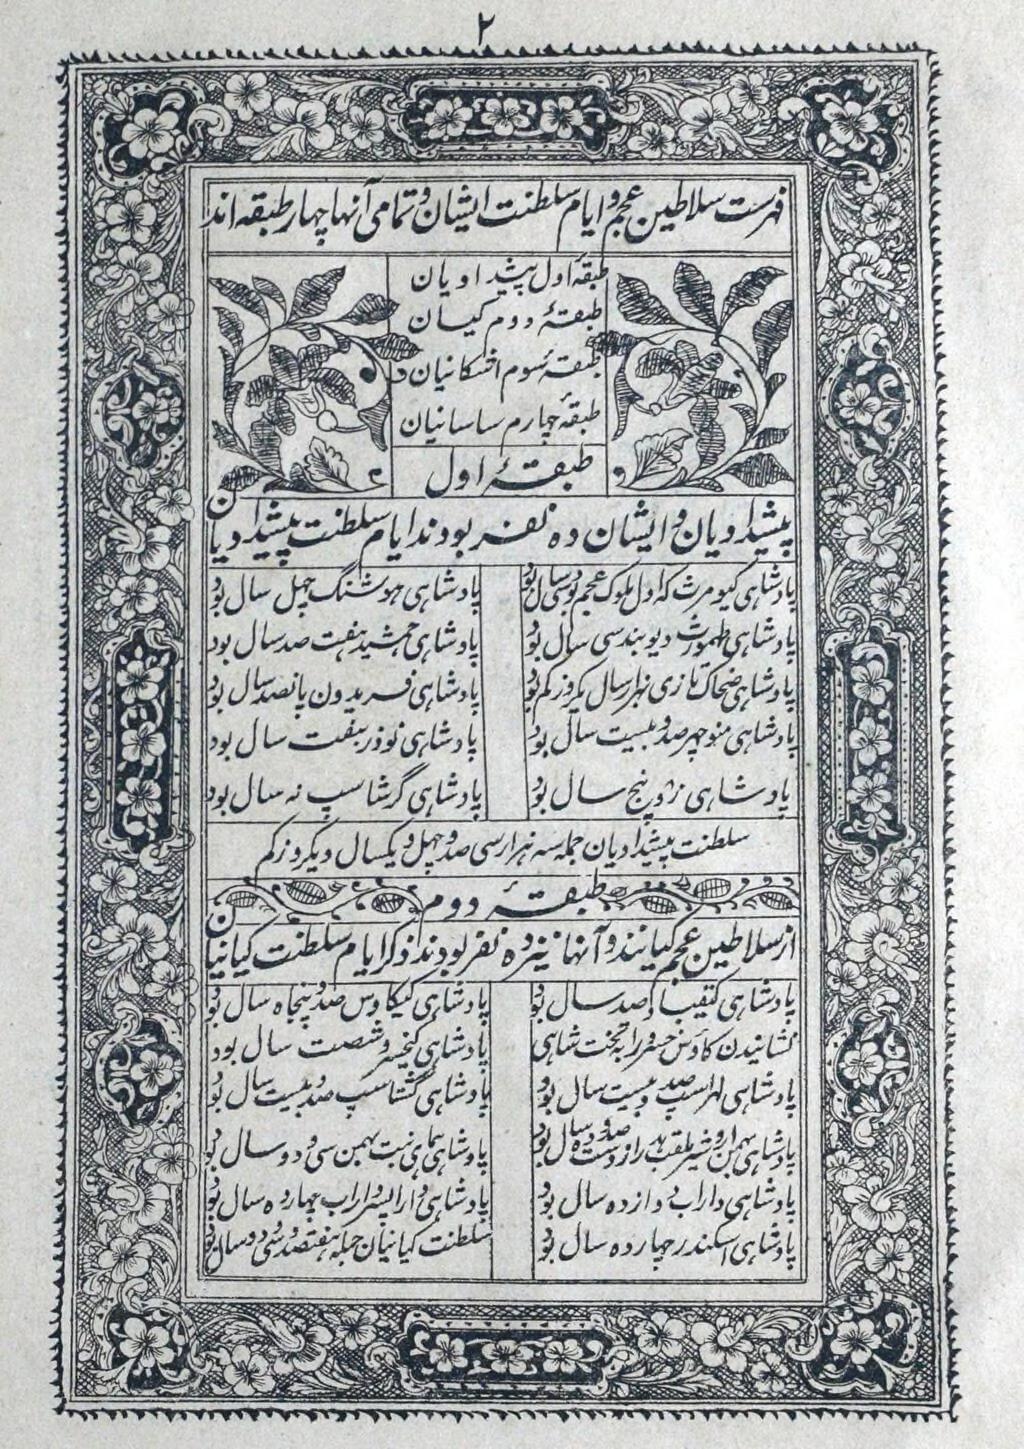 ۲
فهرست سلاطین عجم و ایام سلطنت ایشان و تمامی آنها چهار طبقه اند
طبقهٔ اول پیشدادیان
طبقهٔ دوم کیان
طبقهٔ سوم اشکانیان
طبقهٔ چهارم ساسانیان
طبقهٔ اول
پیشدادیان و ایشان ده نفر بودند ایام سلطنت پیشدادیان
پادشاهی کیومرث که اول ملوک عجم بود سی سال بود
پادشاهی هوشنگ چهل سال بود
پادشاهی طهمورث دیوبند سی سال بود
پادشاهی جمشید هفت صد سال بود
پادشاهی ضحاک تازی هزار سال یکروز کم بود
پادشاهی فریدون پانصد سال بود
پادشاهی منوچهر صد و بیست سال بود
پادشاهی نوذر هفت سال بود
پادشاهی زو پنج سال بود
پادشاهی گرشاسپ نه سال بود
سلطنت پیشدادیان جمله سه هزار سی صد و چهل و یکسال و یکروز کم
طبقهٔ دوم
از سلاطین عجم کیانند و آنها نیز ده نفر بودند ذکر ایام سلطنت کیانیان
پادشاهی کیقباد صد سال بود
پادشاهی کیکاوس صد و پنجاه سال بود
نشانیدن کاؤس خسرو را به تخت شاهی
پادشاهی کیخسرو شصت سال بود
پادشاهی لهراسپ صد و بیست سال بود
پادشاهی گشتاسپ صد و بیست سال بود
پادشاهی بهمن اردشیر ملقب به درازدست صد و ده سال بود
پادشاهی همای بنت بهمن سی و دو سال بود
پادشاهی داراب دوازده سال بود
پادشاهی دارا پسر داراب چهارده سال بود
پادشاهی اسکندر چهارده سال بود
سلطنت کیانیان جمله هفتصد و سی و دو سال بود